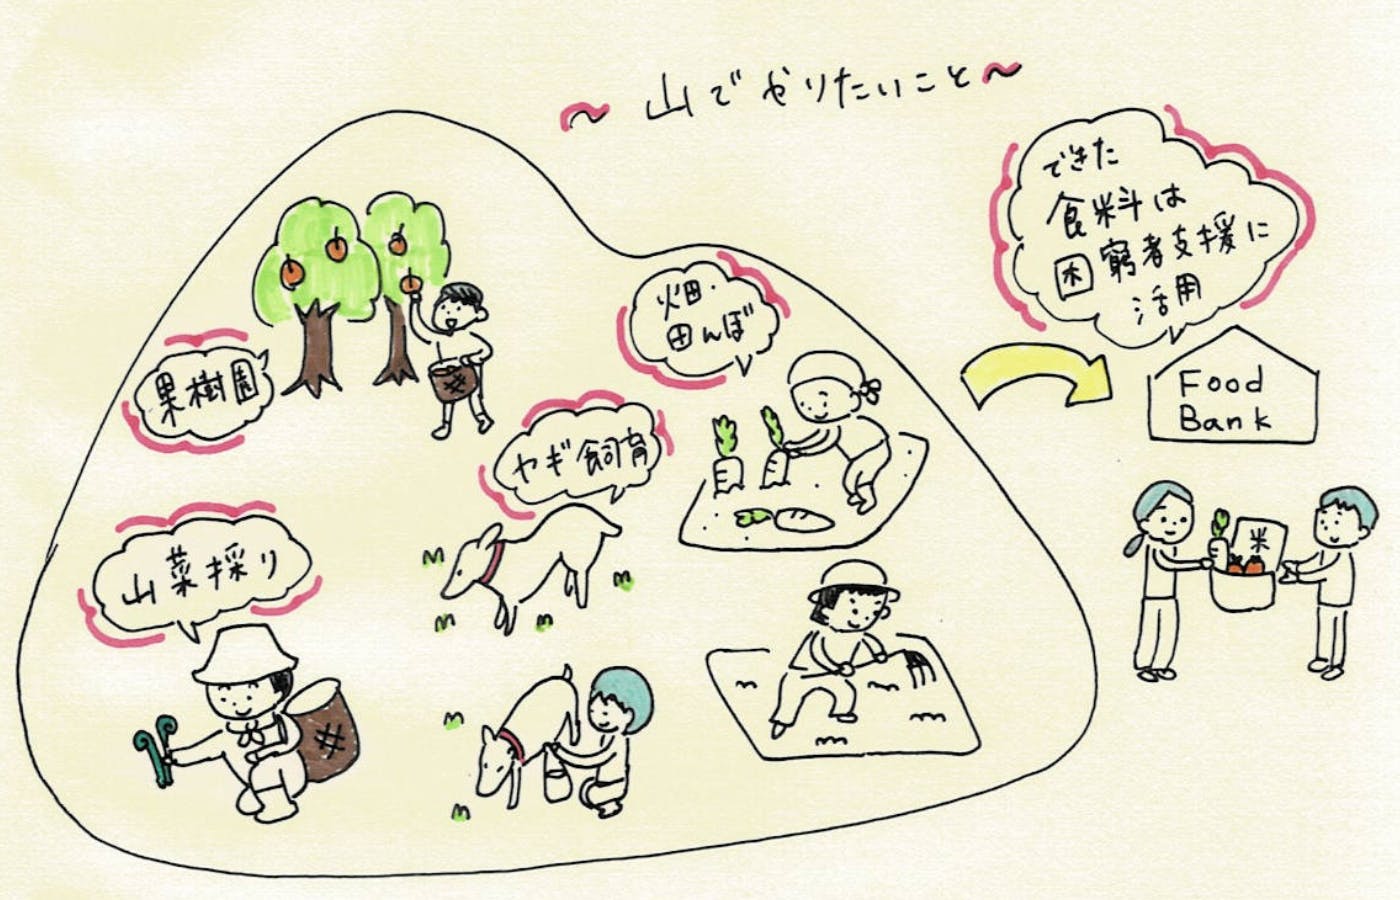 〜山でやりたいこと〜
できた
食料は
困窮者支援に
活用
畑・
田んぼ
果樹園
ヤギ飼育
山菜採り
Food
Bank
米